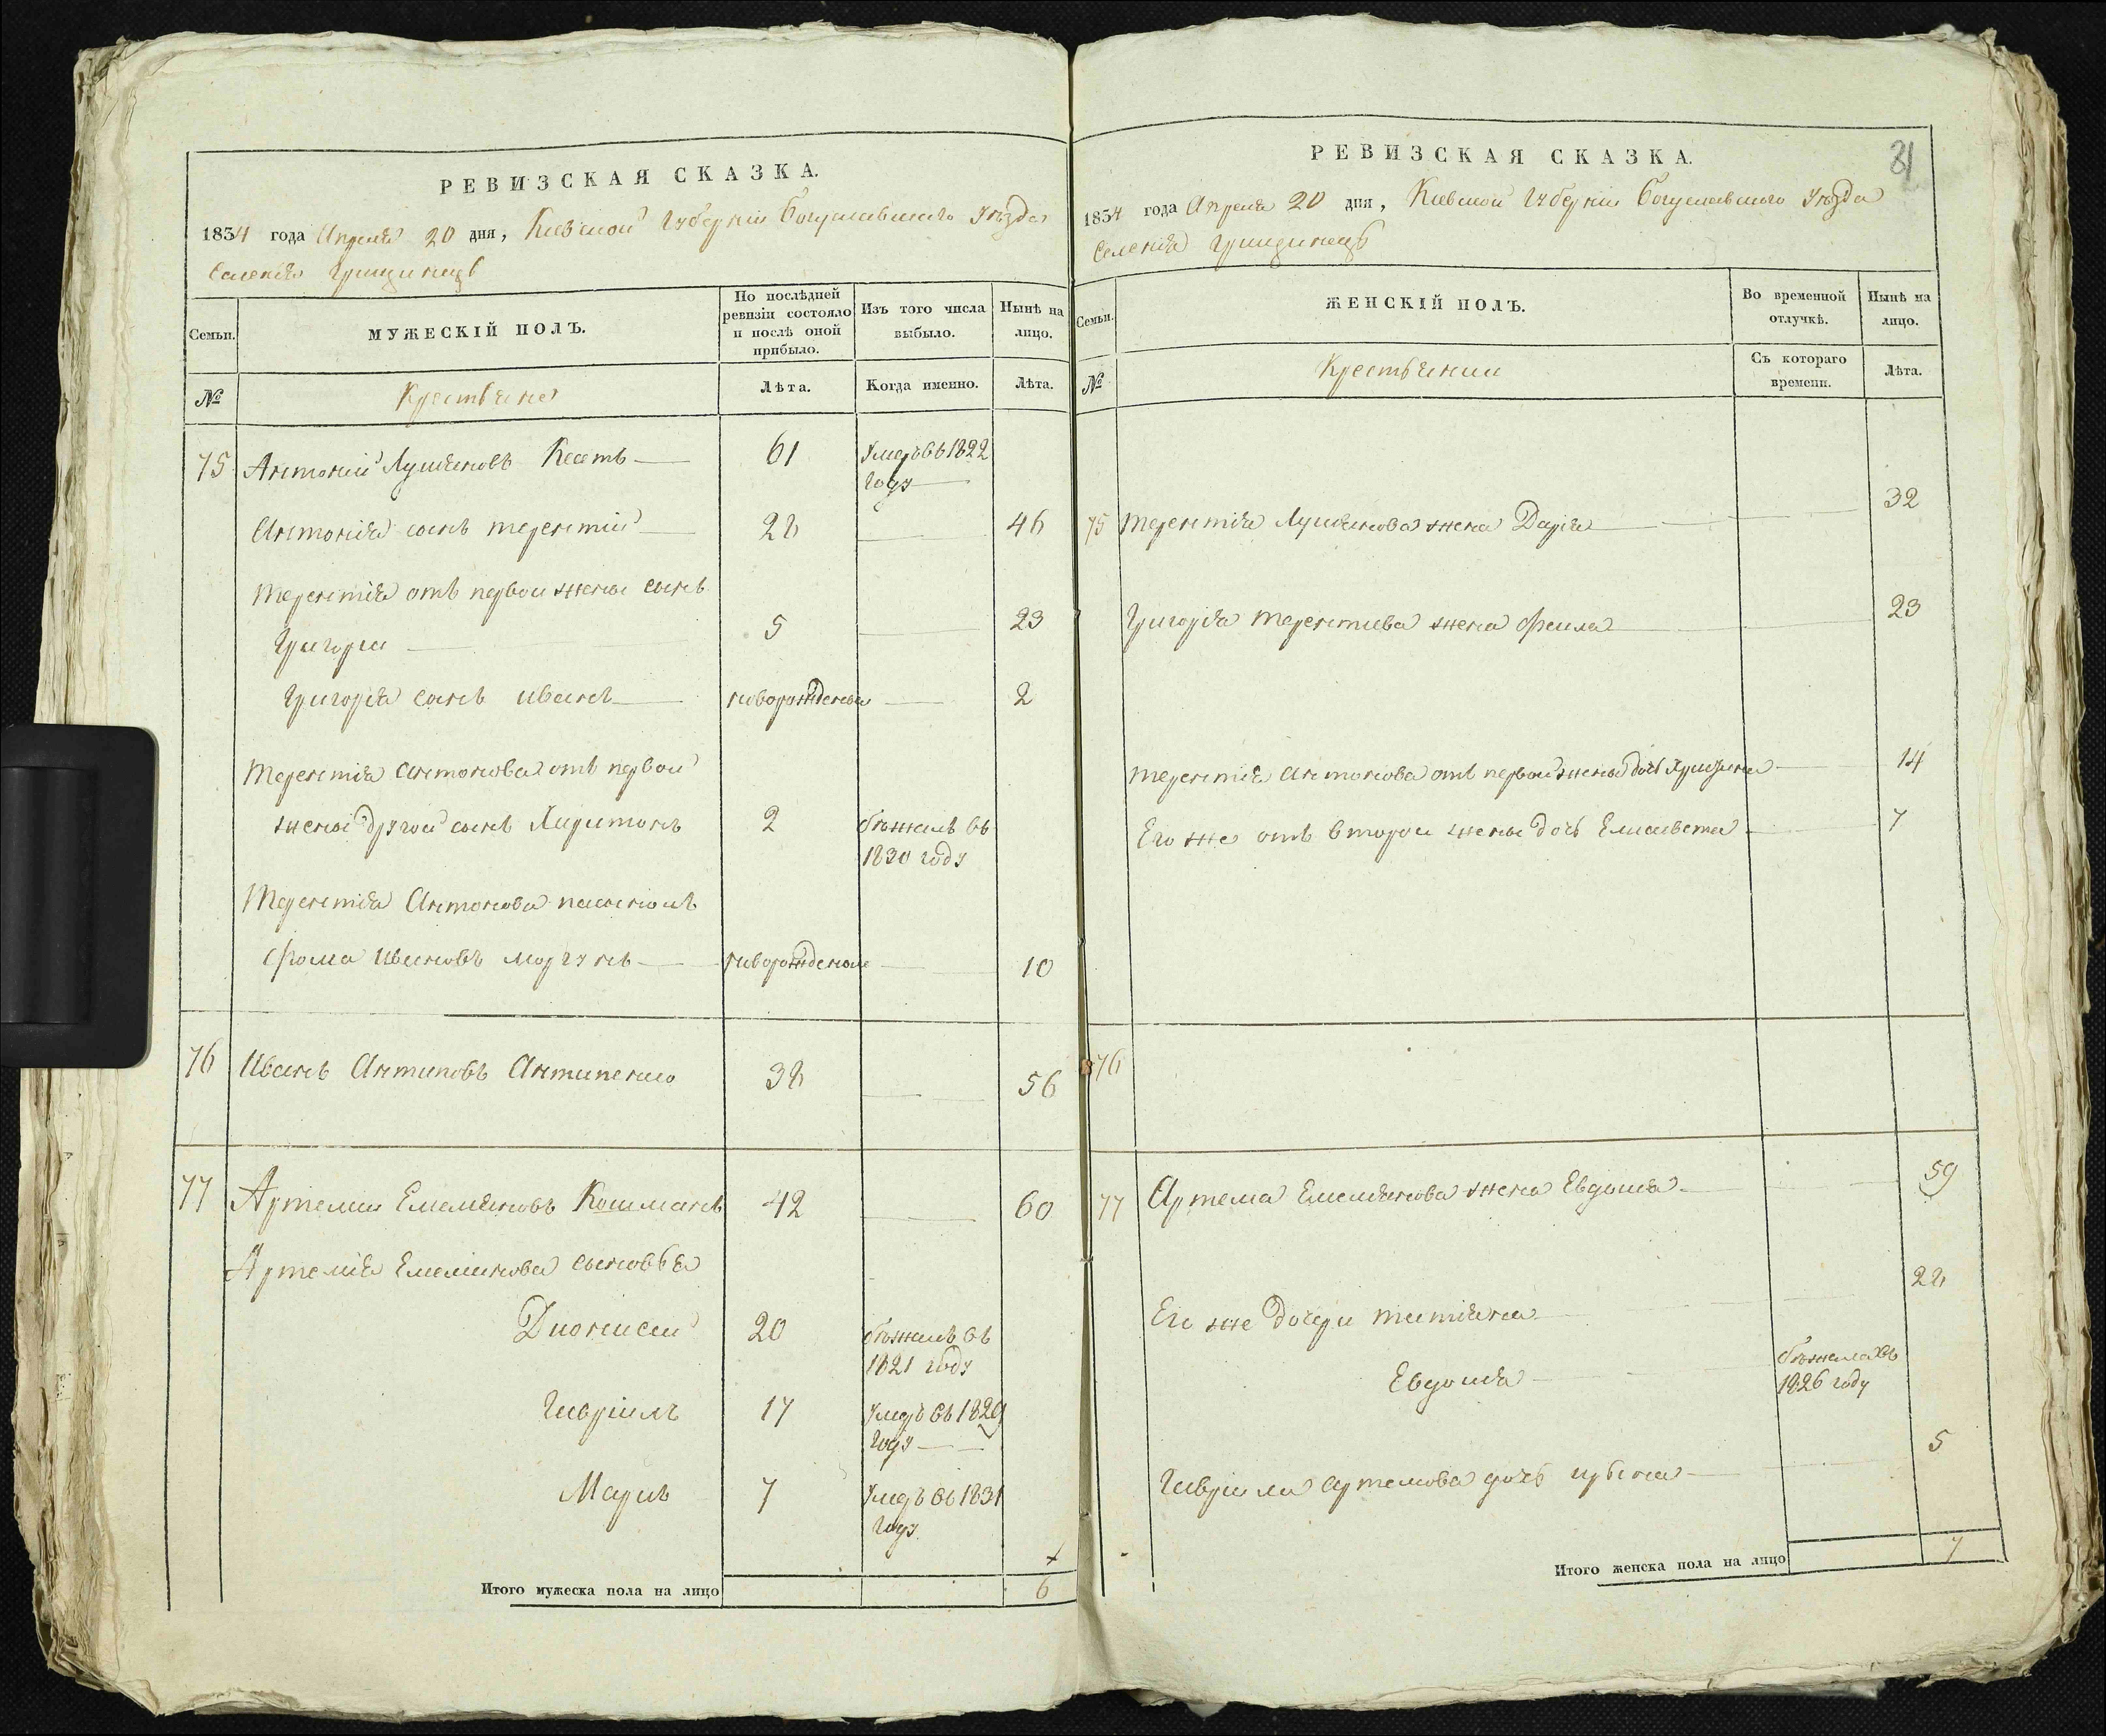 РЕВИЗСКАЯ СКАЗКА.
1834 года Апреля 20 дня, Киевской Губернии Богуславского Уѣзда
Селенія Грищинецъ
Семьи. МУЖЕСКІЙ ПОЛЪ. По послѣдней ревизіи состояло и послѣ оной прибыло. Изъ того числа выбыло. Нынѣ на лицо.
№ Крестьяне Лѣта. Когда именно. Лѣта.
75 Антоній Лукяновъ 61 Умеръ въ 1822
году
Антонія сынъ терентій 28 46
терентія отъ первои жены сынъ
Григори 5 23
Григорія сынъ иванъ новорожденъи 2
терентія антонова отъ первой
жены другой сынъ Харитонъ 2 бѣжалъ въ
1830 году
терентія Антонова пасынокъ
фома Ивановъ моргунъ новорожденъи 10
76 Иванъ Антиповъ Антипенко 38 56
77 Артемии Емельяновъ Кошманъ 42 60
Артемія Емелянова сыновья
Дионисеи 20 бѣжалъ въ
1821 году
Гавриилъ 17 Умеръ въ 1829
году
Маркъ 7 Умеръ въ 1831
году
Итого мужеска пола на лицо 6
РЕВИЗСКАЯ СКАЗКА.
81
1834 года Апреля 20 дня, Киевской Губернии Богуславского Уѣзда
Селенія Грищинецъ
Семьи. ЖЕНСКІЙ ПОЛЪ. Во временной отлучкѣ. Нынѣ на лицо.
№ Крестьянки Съ котораго времени. Лѣта.
75 терентія Лукянова жена Дарія 32
Григорія терентиева жена фекла 23
терентія антонова отъ первой жены дочь Христина 14
Его же отъ второи жены дочь Елисавета 7
76
77 Артема Емелянова жена Евдокія 59
Его же дочери татіяна 28
Евдокія бѣжала въ
1826 году
Гавриила артемова дочь 5
Итого женска пола на лицо 7